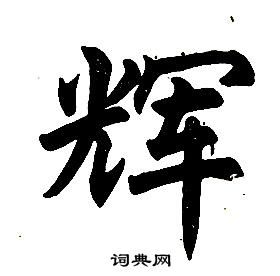 辉
词典网